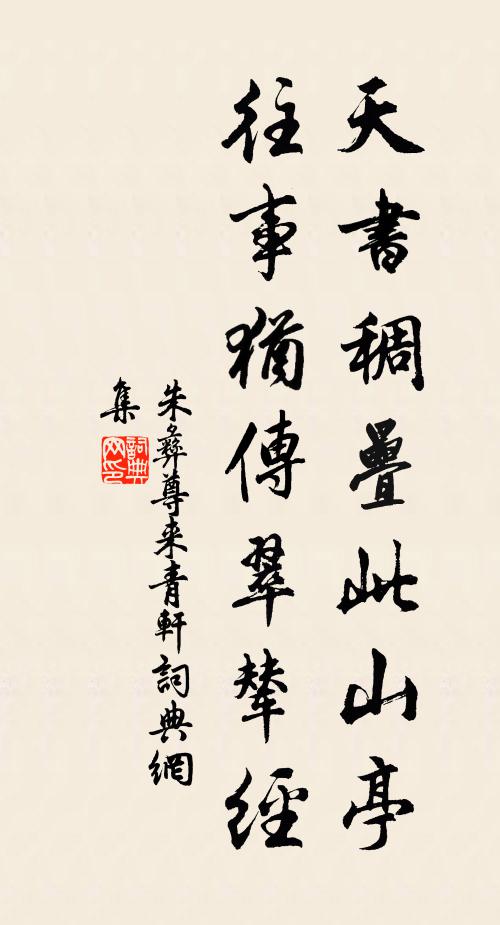 天書稠疊此山亭
往事猶傳翠輦經
朱彝尊来青軒詞典網
集
詞典网印